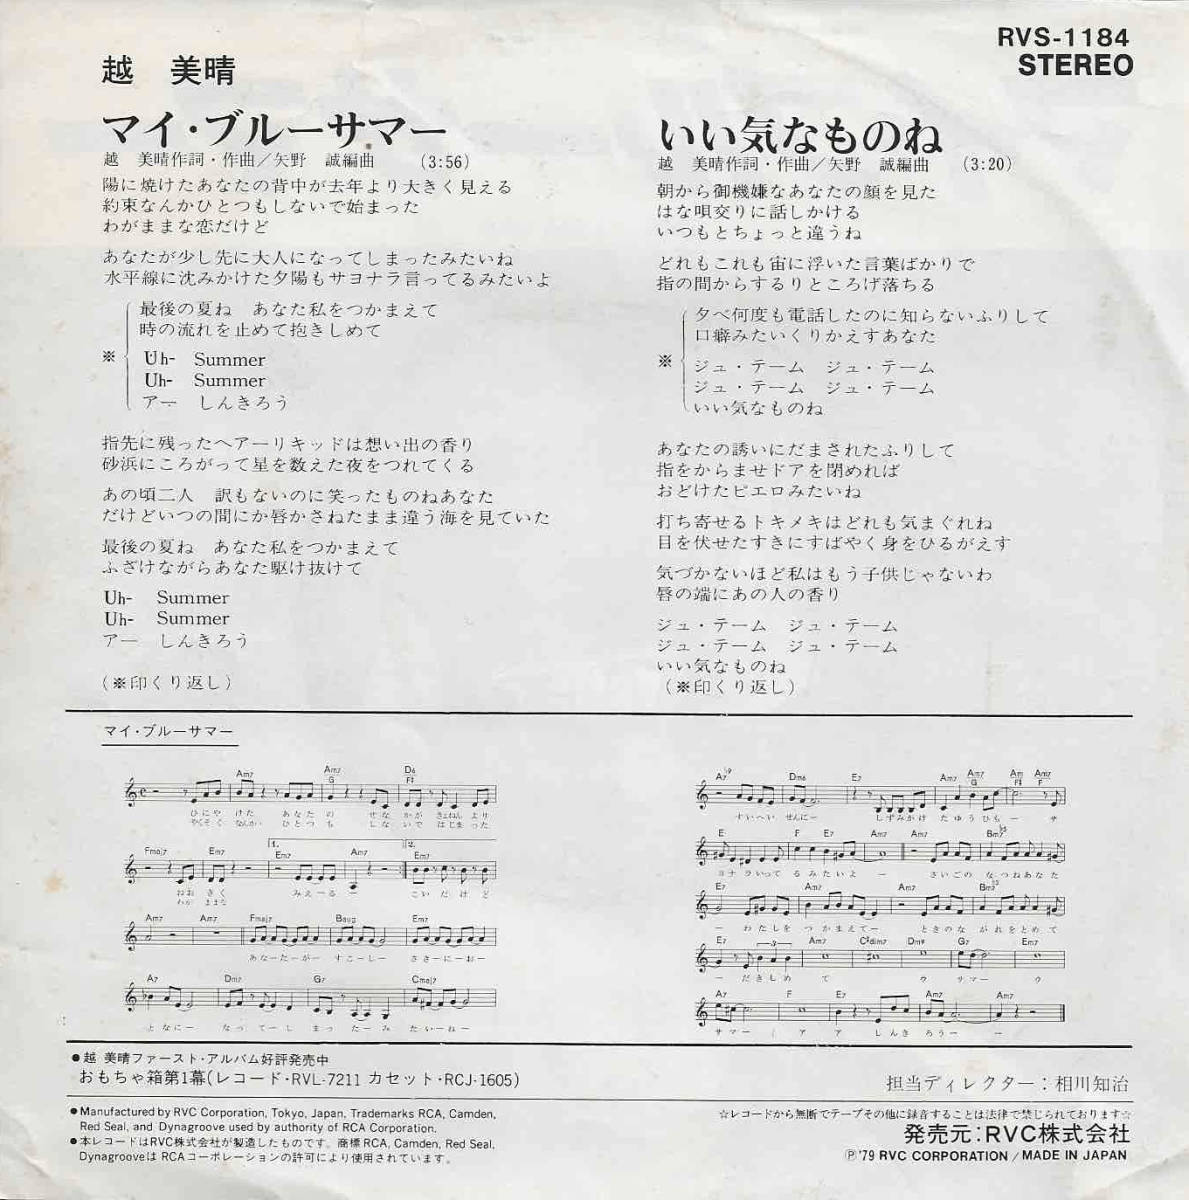 RVS-1184
STEREO
越　美晴
マイ・ブルーサマー
越　美晴作詞・作曲／矢野　誠編曲　(3:56)
陽に焼けたあなたの背中が去年より大きく見える
約束なんかひとつもしないで始まった
わがままな恋だけど
あなたが少し先に大人になってしまったみたいね
水平線に沈みかけた夕陽もサヨナラ言ってるみたいよ
最後の夏ね　あなた私をつかまえて
時の流れを止めて抱きしめて
※ Uh-　Summer
Uh-　Summer
アー　しんきろう
指先に残ったヘアーリキッドは想い出の香り
砂浜にころがって星を数えた夜をつれてくる
あの頃二人　訳もないのに笑ったものねあなた
だけどいつの間にか唇かさねたまま違う海を見ていた
最後の夏ね　あなた私をつかまえて
ふざけながらあなた駆け抜けて
Uh-　Summer
Uh-　Summer
アー　しんきろう
(※印くり返し)
いい気なものね
越　美晴作詞・作曲／矢野　誠編曲　(3:20)
朝から御機嫌なあなたの顔を見た
はな唄交りに話しかける
いつもとちょっと違うね
どれもこれも宙に浮いた言葉ばかりで
指の間からするりところげ落ちる
夕べ何度も電話したのに知らないふりして
口癖みたいくりかえすあなた
※ ジュ・テーム　ジュ・テーム
ジュ・テーム　ジュ・テーム
いい気なものね
あなたの誘いにだまされたふりして
指をからませドアを閉めれば
おどけたピエロみたいね
打ち寄せるトキメキはどれも気まぐれね
目を伏せたすきにすばやく身をひるがえす
気づかないほど私はもう子供じゃないわ
唇の端にあの人の香り
ジュ・テーム　ジュ・テーム
ジュ・テーム　ジュ・テーム
いい気なものね
(※印くり返し)
マイ・ブルーサマー
Am7 Am7 G D6 F#
ひにやけた あなたの せなかが きょねんより
やくそくなんか ひとつも しないで はじまった
Fmaj7 Em7 1. Em7 Am7 2. Em7
おおきく みえーるー こいだけど
わがままな
Am7 Am7 Fmaj7 Baug Em7
あなーたーがー すこーしー さきーにーおー
A7 Dm7 G7 Cmaj7
となにー なってーしまったーみたいーねー
A7 Dm6 E7 Am7 Am7 G Am F# Am7 F
すいへいせんにー しずみかけたゆうひもーサ
E F E7 Am7 Am7 Bm7
ヨナラいってるみたいよー さいごのなつねあなた
E7 Am7 Am7 Bm7
ーわたしをつかまえてー ときのながれをとめて
E7 3 Am7 C#dim7 Dm9 G7 Em7
ーだきしめて ウサマーウ
A7 F E7 Am7 Am7
サマー アアしんきろうーー
●越 美晴ファースト・アルバム好評発売中
おもちゃ箱第1幕(レコード・RVL-7211 カセット・RCJ-1605)
担当ディレクター：相川知治
●Manufactured by RVC Corporation, Tokyo, Japan, Trademarks RCA, Camden,
Red Seal, and Dynagroove used by authority of RCA Corporation.
●本レコードはRVC株式会社が製造したものです。商標RCA, Camden, Red Seal,
DynagrooveはRCAコーポレーションの許可により使用されています。
☆レコードから無断でテープその他に録音することは法律で禁じられております☆
発売元：RVC株式会社
Ⓟ'79 RVC CORPORATION／MADE IN JAPAN